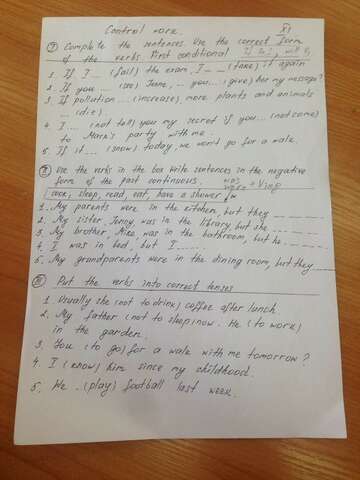 Control work. XI
I Complete the sentences. Use the correct form
of the verbs. First conditional If Ps, will V1
1. If I ... (fail) the exam, I ... (take) it again
2. If you ... (see) Jane, ... you ... (give) her my message?
3. If pollution ... (increase) more plants and animals
... (die).
4. I ... (not tell) you my secret if you ... (not come)
to Mark's party with me.
5. If it ... (snow) today, we won't go for a walk.
II Use the verbs in the box write sentences in the negative
form of the past continuous. was
were + Ving
cook, sleep, read, eat, have a shower
1. My parents were in the kitchen, but they
2. My sister, Jenny, was in the library, but she
3. My brother, Mike, was in the bathroom, but he
4. I was in bed, but I
5. My grandparents were in the dining room, but they
III Put the verbs into correct tenses
1. Usually she (not to drink) coffee after lunch.
2. My father (not to sleep) now. He (to work)
in the garden.
3. You (to go) for a walk with me tomorrow?
4. I (know) him since my childhood.
5. We (play) football last week.